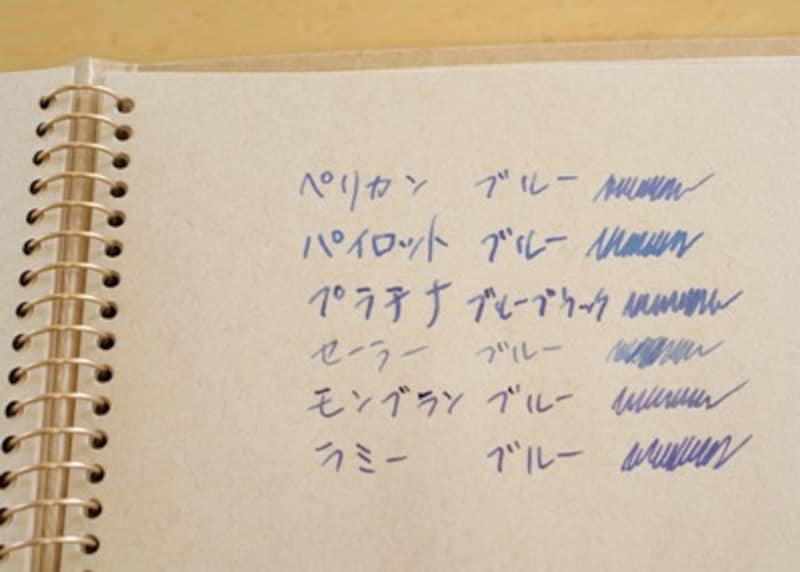 ペリカン ブルー
パイロット ブルー
プラチナ ブルーブラック
セーラー ブルー
モンブラン ブルー
ラミー ブルー